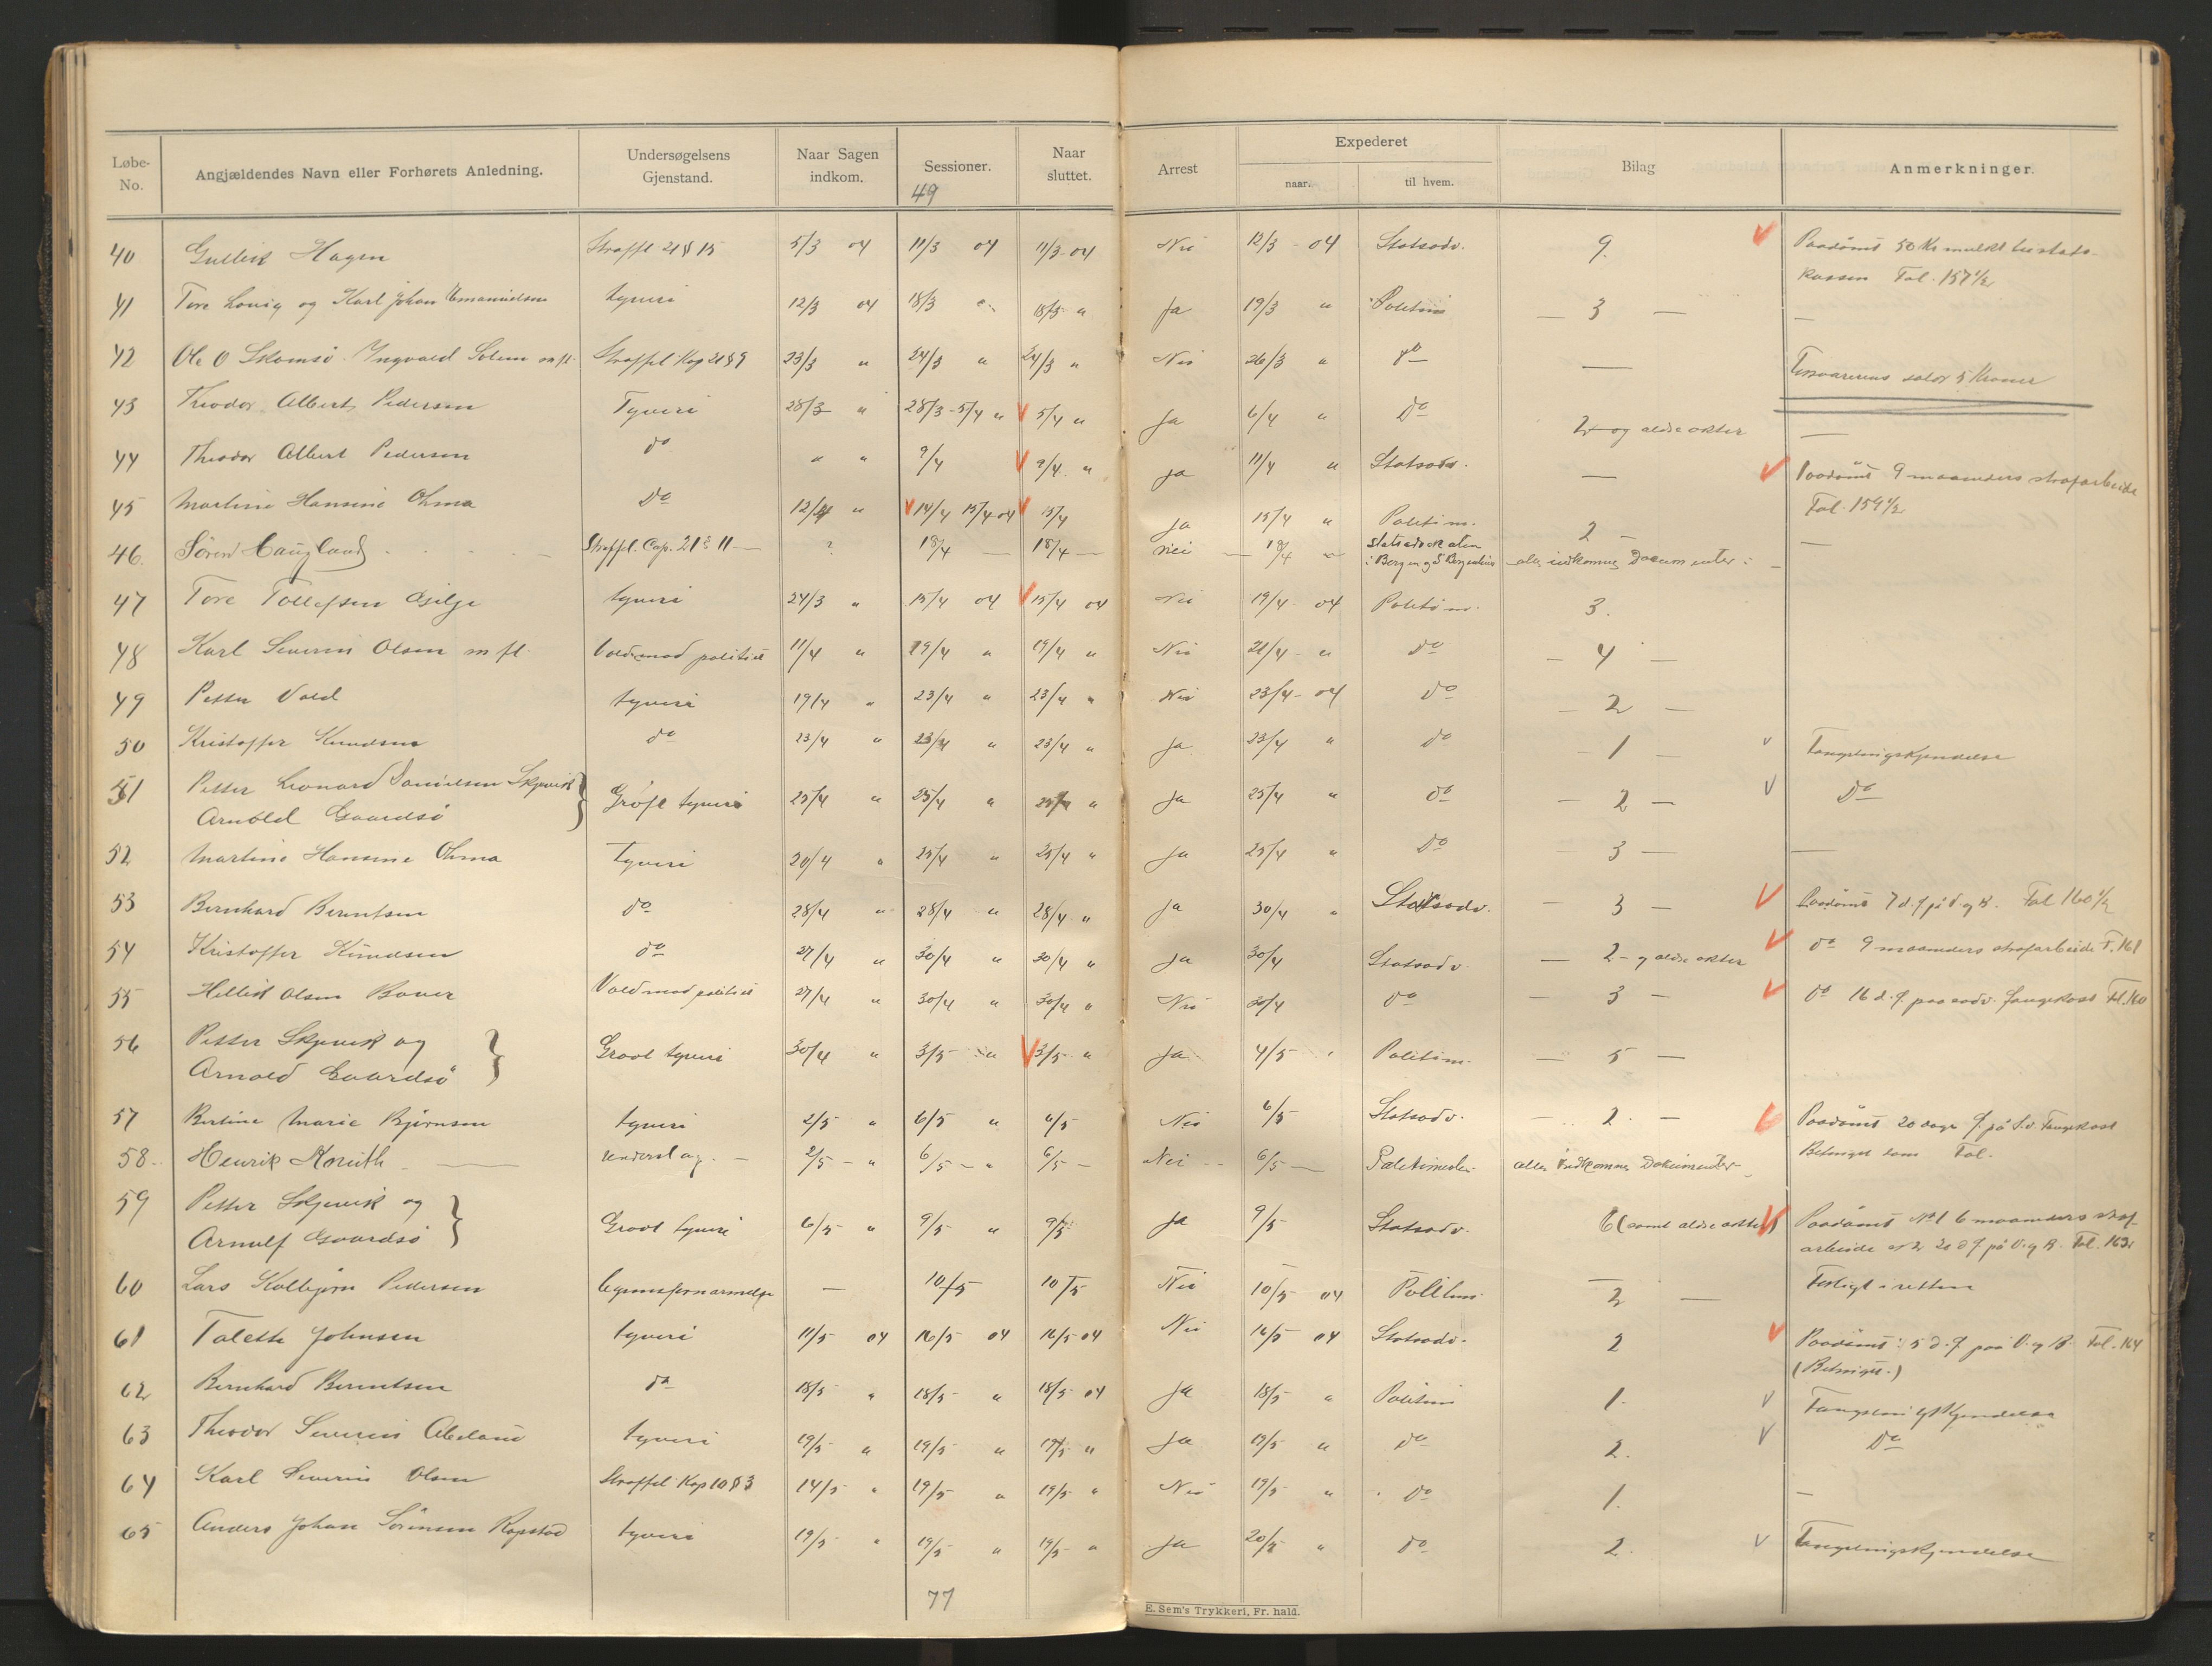 Løbe-No. Angjældendes Navn eller Forhørets Anledning. Undersøgelsens Gjenstand. Naar Sagen indkom. Sessioner. Naar sluttet. Arrest Expederet naar. til hvem. Bilag Anmerkninger.
49
40 Gullik Hagen Straffl. 21 § 15 5/3 04 11/3 04 11/3 04 Nei 12/3 - 04 Statsadv. 9. V Paadømt 50 Kr mulkt til stats-
kassen Fol. 157 1/2
41 Tore Lovig og Karl Johan Emanuelsen tyveri 12/3 04 18/3 " 18/3 " Ja 19/3 " Politim — 3 — —
42 Ole O Skomsø. Ingvald Solem m fl. Straffel. Kap 21 § 9 23/3 " 24/3 " 24/3 " Nei 26/3 " do — Forsvarerens salær 5 Kroner
43 Theodor Albert Pedersen Tyveri 28/3 " 28/3 - 5/4 " V 5/4 " Ja 6/4 " do 2 og ældre akter —
44 Theodor Albert Pedersen do " " 9/4 V 9/4 " Ja 11/4 " Statsadv. — V Paadømt 9 maaneders strafarbeide
Fol. 159 1/2
45 Martine Hansine Ohma do 12/4 " V 14/4 15/4 04 V 15/4 Ja 15/4 " Politim. 2 —
46. Søren Haugland Straffl. Cap. 21 § 11 — ? 18/4 — 18/4 — Nei — 18/4 " Statsadvokaten
i Bergen og S. Bergenhus alle indkomne Documenter —
47 Tore Tollefsen Gilje tyveri 24/3 " 15/4 04 V 15/4 04 Nei 19/4 04 Politim. 3.
48 Karl Severin Olsen m fl. Vold mod politiet 11/4 " 19/4 " 19/4 " Nei 21/4 " do — 4 —
49 Petter Vold tyveri 19/4 " 23/4 " 23/4 " Nei 23/4 - 04 do — 2 —
50 Kristoffer Knudsen do 23/4 " 23/4 " 23/4 " Ja 23/4 " do — 1 — V Fængslingskjendelse
51 Petter Leonard Danielsen Skjevik
Arnold Gaardsø } Grovt tyveri 25/4 " 25/4 " 25/4 " Ja 25/4 " do — 2 — V do
52 Martine Hansine Ohma Tyveri 20/4 " 25/4 " 25/4 " Ja 25/4 " do — 3 — —
53 Bernhard Berentsen do 28/4 " 28/4 " 28/4 " Ja 30/4 " Statsadv. — 3 — V Paadømt 7 d. f på V. og B. Fol 160 1/2
54 Kristoffer Knudsen do 27/4 " 30/4 " 30/4 " Ja 30/4 Statsadv. — 2 — og ældre akter V do 9 maaneders strafarbeide F. 161
55 Hellik Olsen Bover Vold mod politiet 27/4 " 30/4 " 30/4 " Nei 30/4 do — 3 — V do 16 d. f. paa sædv. fangekost Fol. 160
56 Petter Skjevik og
Arnold Gaardsø } Grovt tyveri 30/4 " 3/5 " V 3/5 " Ja 4/5 " Politim. — 5 —
57 Bertine Marie Bjørnsen tyveri 2/5 " 6/5 " 6/5 Nei 6/5 Statsadv. — 2. — V Paadømt 20 dage f. på S. v. Fangekost
Betinget dom Fol.
58 Henrik — underslag. — 2/5 — " 6/5 — " 6/5 — Nei — 6/5 — Politimester alle indkomne Dokumenter —
59 Petter Skjevik og
Arnulf Gaardsø } Grovt tyveri 6/5 " 9/5 " 9/5 Ja 9/5 Statsadv. 6 (samt ældre akter) V Paadømt No 1 6 maaneders straf-
arbeide No 2 20 d f på V. og B. Fol. 163
60 Lars Kolbjørn Pedersen legemsfornærmelse — 10/5 10/5 Nei 10/5 04 Politim — 2 — Forligt i retten
61 Talette Johnsen tyveri 11/5 04 16/5 04 16/5 04 Nei 16/5 04 Statsadv. 2 V Paadømt: 5 d. f paa V. og B. Fol. 164
(Betinget.)
62 Bernhard Berentsen do 18/5 " 18/5 " 18/5 04 Ja 18/5 " Politim 1. V Fængslingskjendelse
63 Theodor Severin Abeland tyveri 19/5 " 19/5 " 19/5 " Ja 19/5 " do 2. V do
64 Karl Severin Olsen Straffel Kap 10 § 3 14/5 " 19/5 " 19/5 " Nei 19/5 " do 1. —
65 Anders Johan Sørensen Ropstad tyveri 19/5 " 19/5 " 19/5 " Ja 20/5 " do 2. V Fængslingskjendelse
77
E. Sem's Trykkeri, Fr. hald.